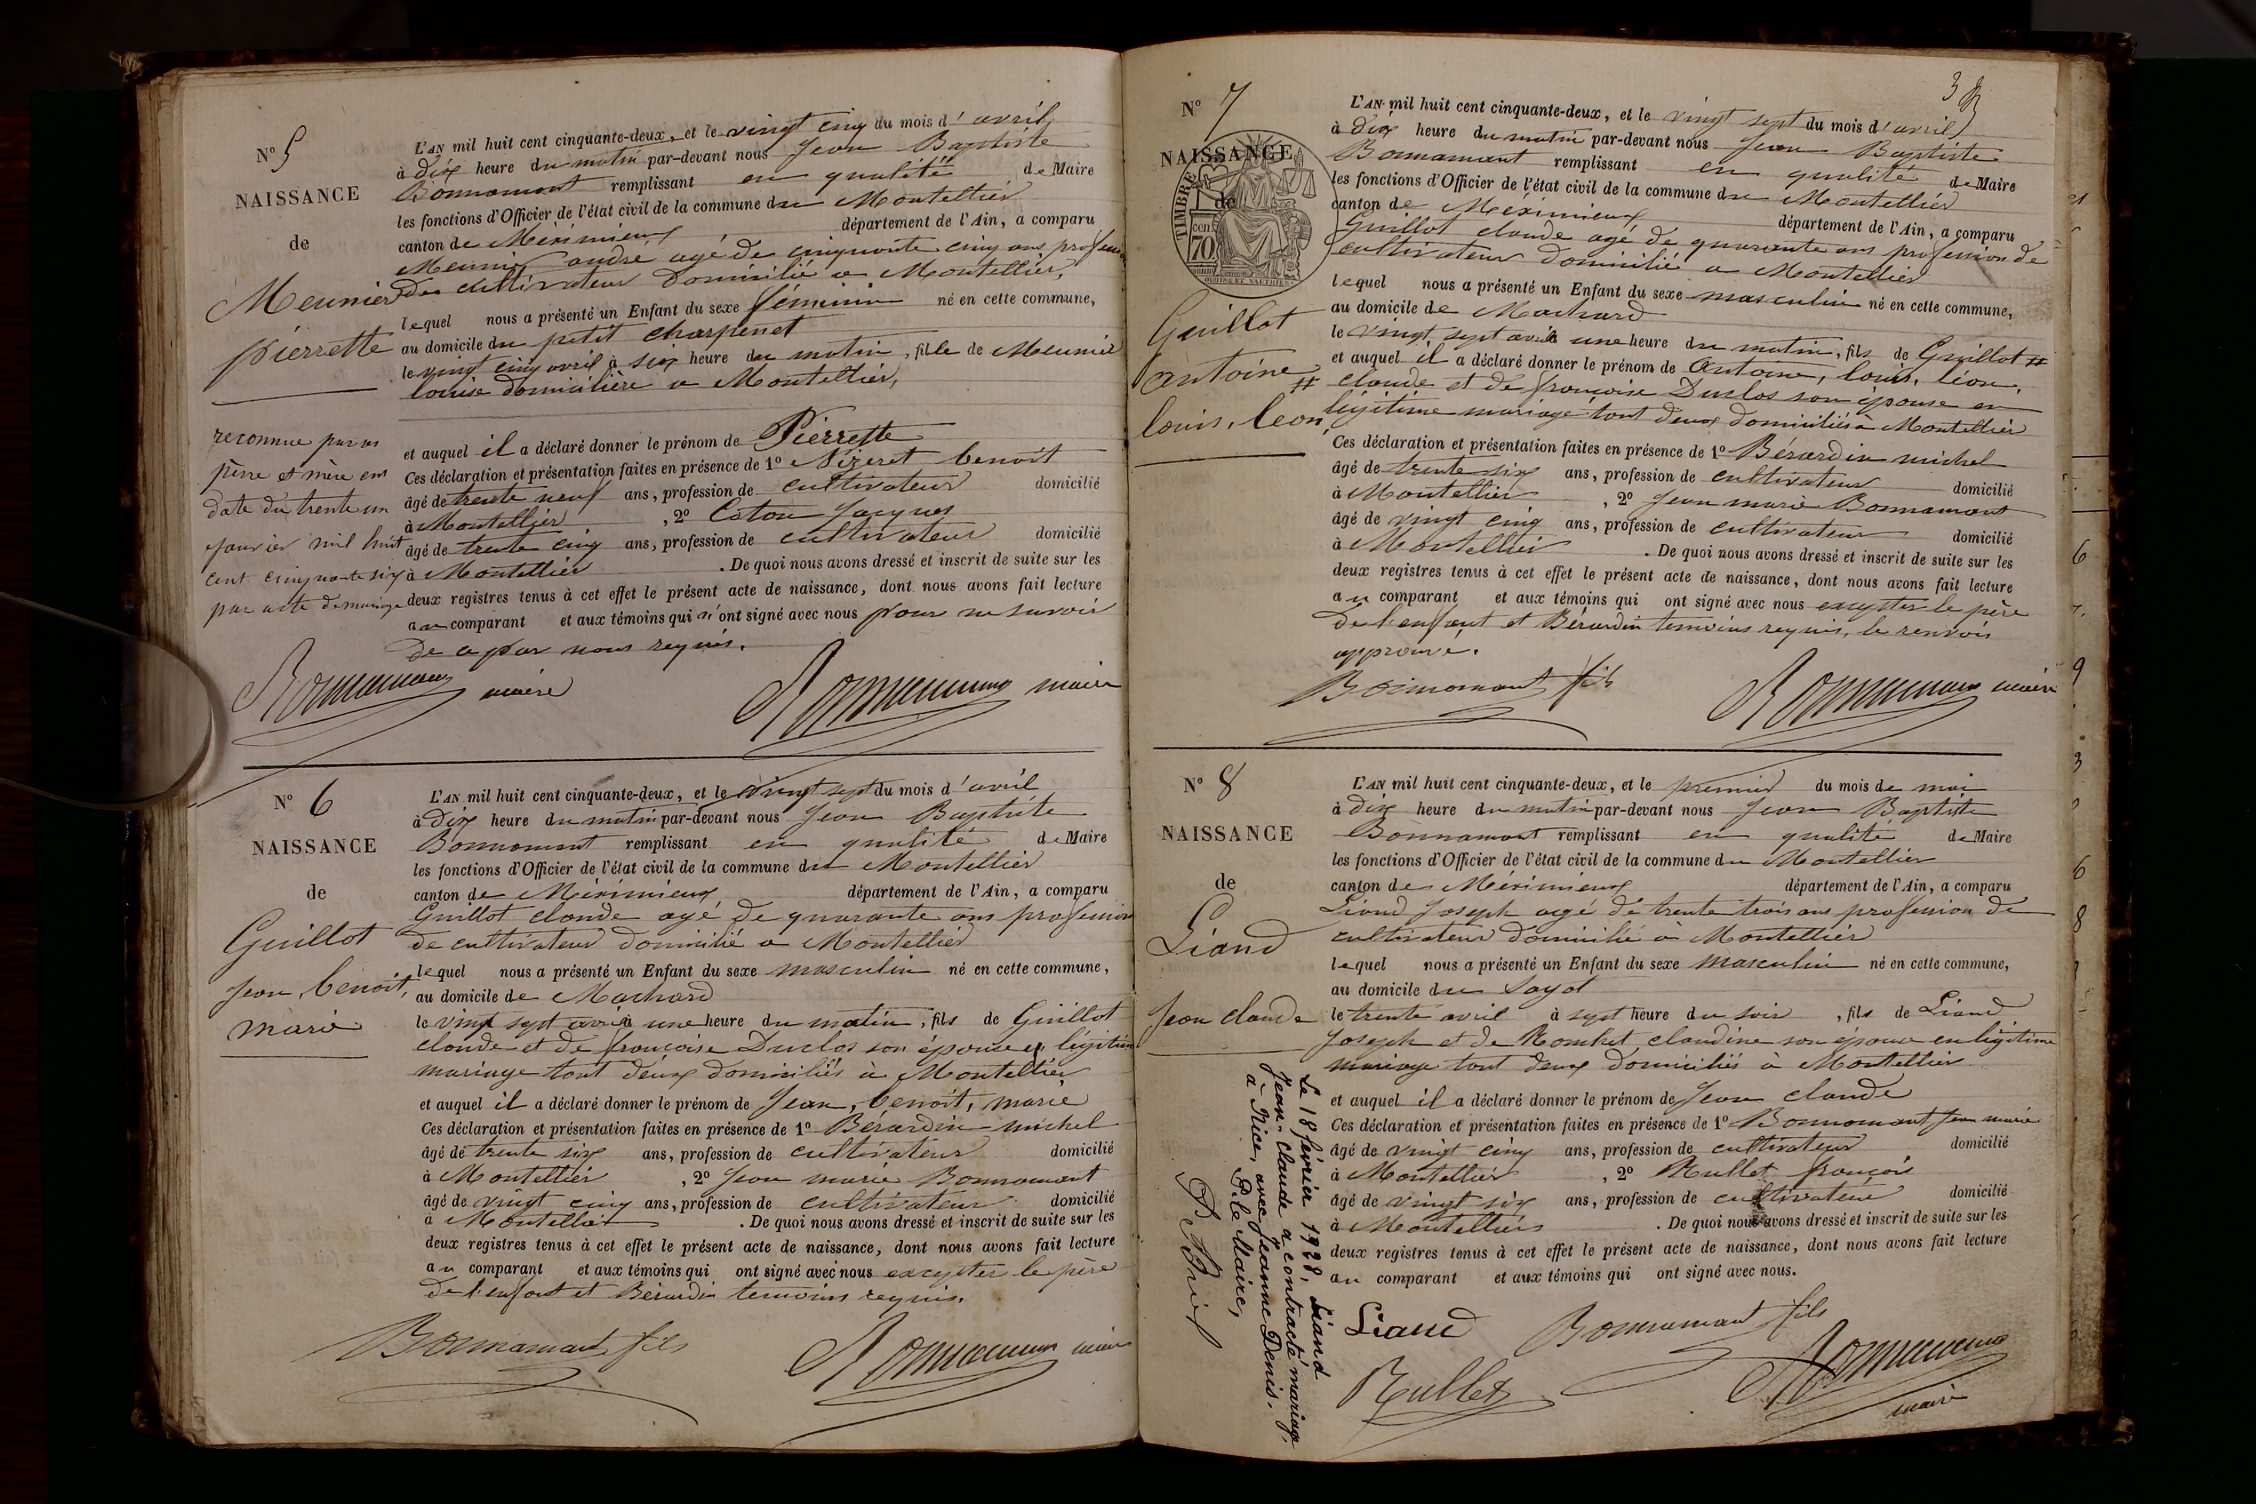 N° 5
NAISSANCE
de
Meunier
pierrette
reconnue par ses
père et mère en
date du trente un
janvier mil huit
cent cinquante six
par acte de mariage
L'AN mil huit cent cinquante-deux, et le vingt cinq du mois d'avril
à dix heure du matin par-devant nous Jean Baptiste
Bonnamont remplissant en qualité de Maire
les fonctions d'Officier de l'état civil de la commune du Montellier
canton de Méximieux département de l'Ain, a comparu
Meunier andré agé de cinquante cinq ans profession
de cultivateur domicilié a Montellier,
lequel nous a présenté un Enfant du sexe féminin né en cette commune,
au domicile du petit charpenet
le vingt cinq avril à six heure du matin, fille de Meunier
louise domicilière a Montellier,
et auquel il a déclaré donner le prénom de Pierrette
Ces déclaration et présentation faites en présence de 1° Nizeret benoit
âgé de trente neuf ans, profession de cultivateur domicilié
à Montellier, 2° Coton Jacques
âgé de trente cinq ans, profession de cultivateur domicilié
à Montellier. De quoi nous avons dressé et inscrit de suite sur les
deux registres tenus à cet effet le présent acte de naissance, dont nous avons fait lecture
au comparant et aux témoins qui n'ont signé avec nous pour ne savoir
de ce par nous requis.
Bonnamont maire Bonnamont maire
N° 6
NAISSANCE
de
Guillot
Jean, benoit,
marie
L'AN mil huit cent cinquante-deux, et le vingt sept du mois d'avril
à dix heure du matin par-devant nous Jean Baptiste
Bonnamont remplissant en qualité de Maire
les fonctions d'Officier de l'état civil de la commune du Montellier
canton de Méximieux département de l'Ain, a comparu
Guillot claude agé de quarante ans profession
de cultivateur domicilié a Montellier
lequel nous a présenté un Enfant du sexe masculin né en cette commune,
au domicile de Machard
le vingt sept avril à une heure du matin, fils de Guillot
claude et de françoise Duclos son épouse en légitime
mariage tout deux domiciliés à Montellier,
et auquel il a déclaré donner le prénom de Jean, benoit, marie
Ces déclaration et présentation faites en présence de 1° Bérardin michel
âgé de trente six ans, profession de cultivateur domicilié
à Montellier, 2° Jean marie Bonnamont
âgé de vingt cinq ans, profession de cultivateur domicilié
à Montellier. De quoi nous avons dressé et inscrit de suite sur les
deux registres tenus à cet effet le présent acte de naissance, dont nous avons fait lecture
au comparant et aux témoins qui ont signé avec nous excepter le père
de l'enfant et Bérardin temoins requis.
Bonnamont fils Bonnamont maire
N° 7
NAISSANCE
de
TIMBRE
70
Guillot
antoine #
louis, leon,
L'AN mil huit cent cinquante-deux, et le vingt sept du mois d'avril
à dix heure du matin par-devant nous Jean Baptiste
Bonnamont remplissant en qualité de Maire
les fonctions d'Officier de l'état civil de la commune du Montellier
canton de Méximieux département de l'Ain, a comparu
Guillot claude agé de quarante ans profession de
cultivateur domicilié a Montellier
lequel nous a présenté un Enfant du sexe masculin né en cette commune,
au domicile de Machard
le vingt sept avril à une heure du matin, fils de Guillot #
et auquel il a déclaré donner le prénom de Antoine, louis, léon,
# claude et de françoise Duclos son épouse en
légitime mariage tout deux domiciliés à Montellier
Ces déclaration et présentation faites en présence de 1° Bérardin michel
âgé de trente six ans, profession de cultivateur domicilié
à Montellier, 2° Jean marie Bonnamont
âgé de vingt cinq ans, profession de cultivateur domicilié
à Montellier. De quoi nous avons dressé et inscrit de suite sur les
deux registres tenus à cet effet le présent acte de naissance, dont nous avons fait lecture
au comparant et aux témoins qui ont signé avec nous excepter le père
de l'enfant et Bérardin temoins requis, le renvois
approuvé.
Bonnamont fils Bonnamont maire
N° 8
NAISSANCE
de
Liand
Jean claude
Le 18 février 1928, Liand
Jean-Claude a contracté mariage,
à Nice, avec Jeanne Denis.
P. le Maire,
L'AN mil huit cent cinquante-deux, et le premier du mois de mai
à dix heure du matin par-devant nous Jean Baptiste
Bonnamont remplissant en qualité de Maire
les fonctions d'Officier de l'état civil de la commune du Montellier
canton de Méximieux département de l'Ain, a comparu
Liand Joseph agé de trente trois ans profession de
cultivateur domicilié à Montellier
lequel nous a présenté un Enfant du sexe masculin né en cette commune,
au domicile du Sayot
le trente avril à sept heure du soir, fils de Liand
Joseph et de claudine son épouse en légitime
mariage tout deux domiciliés à Montellier
et auquel il a déclaré donner le prénom de Jean claude
Ces déclaration et présentation faites en présence de 1° Bonnamont Jean marie
âgé de vingt cinq ans, profession de cultivateur domicilié
à Montellier, 2° Rullet françois
âgé de vingt six ans, profession de cultivateur domicilié
à Montellier. De quoi nous avons dressé et inscrit de suite sur les
deux registres tenus à cet effet le présent acte de naissance, dont nous avons fait lecture
au comparant et aux témoins qui ont signé avec nous.
Liand Bonnamont fils
Rullet Bonnamont
maire